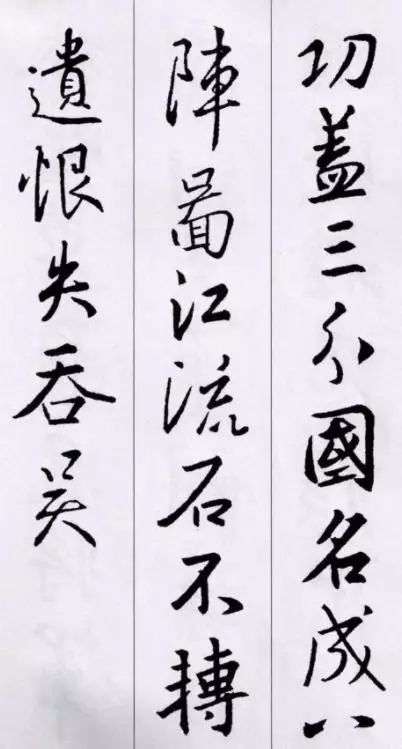 功蓋三分國名成八
陣圖江流石不轉
遺恨失吞吳